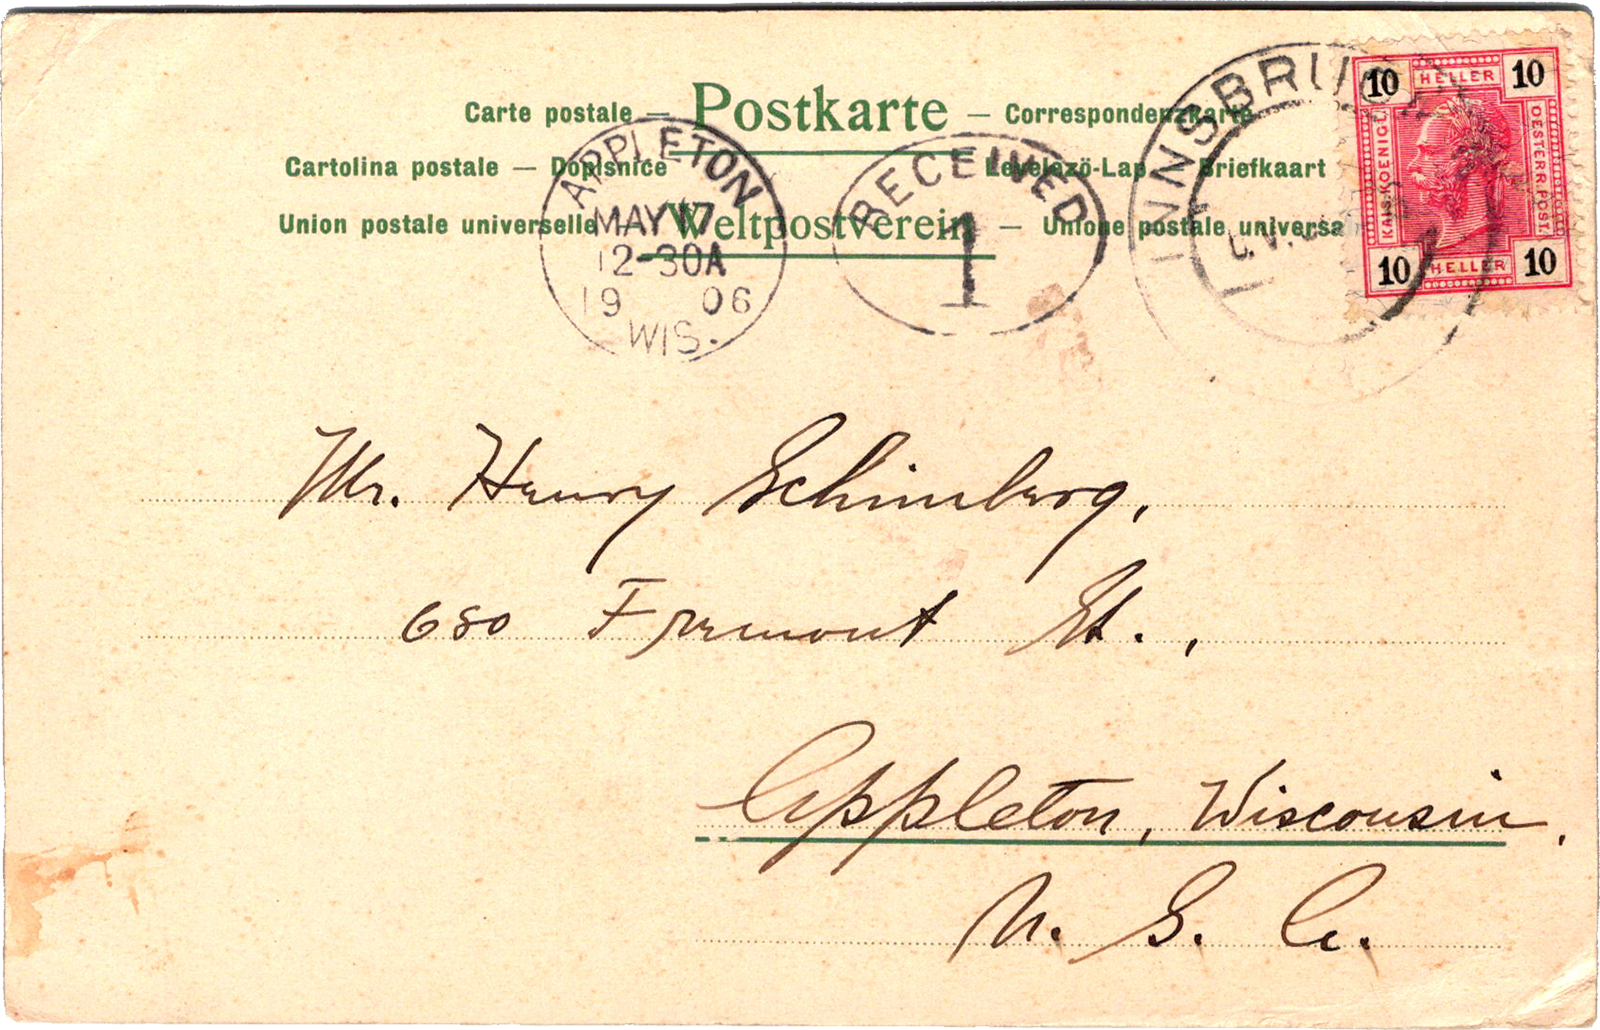 Carte postale — Postkarte — Correspondenzkarte
Cartolina postale — Dopisnice Levelező-Lap — Briefkaart
Union postale universelle Weltpostverein — Unione postale universa
APPLETON
MAY 17
12-30A
19 06
WIS.
RECEIVED
1
INNSBRUCK
10 HELLER 10
KAIS. KOENIGL.
OESTERR. POST.
10 HELLER 10
Mr. Henry Schimberg,
680 Fremont St.,
Appleton, Wisconsin,
U. S. A.